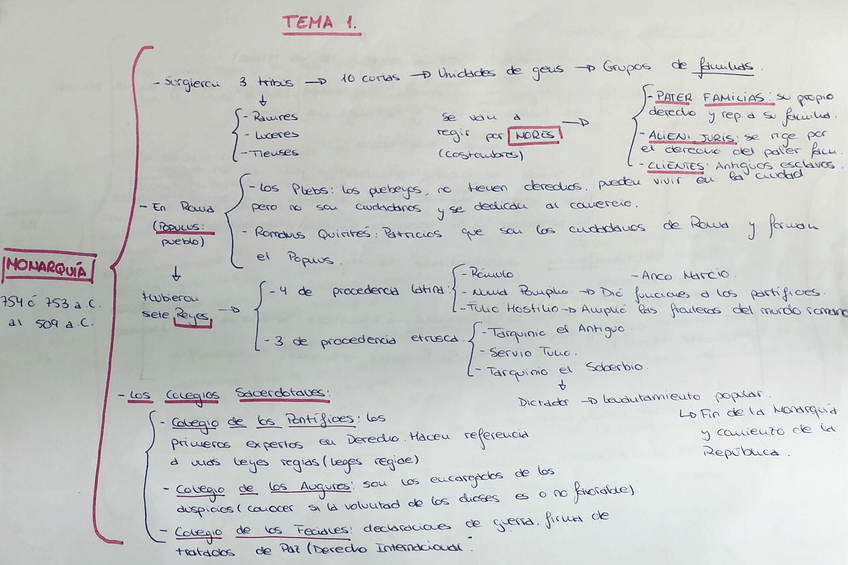 TEMA 1.
- Surgieron 3 tribus → 10 curias → Unidades de gens → Grupos de familias.
- Ramnes
- Luceres
- Titienses
Se van a
regir por MORES
(costumbres)
- PATER FAMILIAS: su propio
derecho y rep a su familia.
- ALIENI JURIS: se rige por
el derecho del pater fam.
- CLIENTES: Antiguos esclavos.
- En Roma
(POPULUS:
pueblo)
- Los Plebs: los plebeyos, no tienen derechos, pueden vivir en la ciudad
pero no son ciudadanos y se dedican al comercio.
- Romanus Quirites: Patricios que son los ciudadanos de Roma y forman
el Populus.
MONARQUÍA
754 ó 753 a C.
al 509 a C.
Hubieron
siete Reyes →
- 4 de procedencia latina
- Rómulo
- Anco Marcio.
- Numa Pompilio → Dió funciones a los pontífices.
- Tulio Hostilio → Amplió las fronteras del mundo romano
- 3 de procedencia etrusca
- Tarquinio el Antiguo.
- Servio Tulio.
- Tarquinio el Soberbio.
Dictador → Levantamiento popular.
↳ Fin de la Monarquía
y comienzo de la
República.
- Los Colegios Sacerdotales:
- Colegio de los Pontífices: los
primeros expertos en Derecho. Hacen referencia
a unas leyes regias (leges regiae)
- Colegio de los Augures: son los encargados de los
auspicios (conocer si la voluntad de los dioses es o no favorable)
- Colegio de los Feciales: declaraciones de guerra, firma de
tratados de Paz (Derecho Internacional.